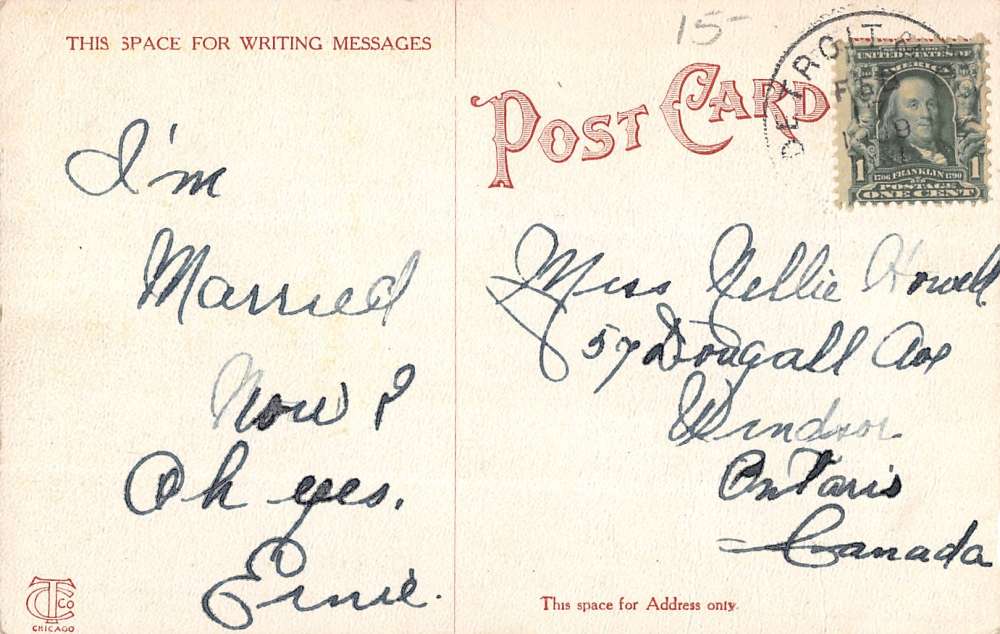 THIS SPACE FOR WRITING MESSAGES
I'm
Married
Now ?
Oh yes.
Ernie.
CT Co
CHICAGO
15-
POST CARD
DETROIT, M
UNITED STATES OF
AMERICA
1706 FRANKLIN 1790
1 1
POSTAGE
ONE CENT
Miss Nellie Howell
57 Dougall Ave
Windsor
Ontario
Canada
This space for Address only.